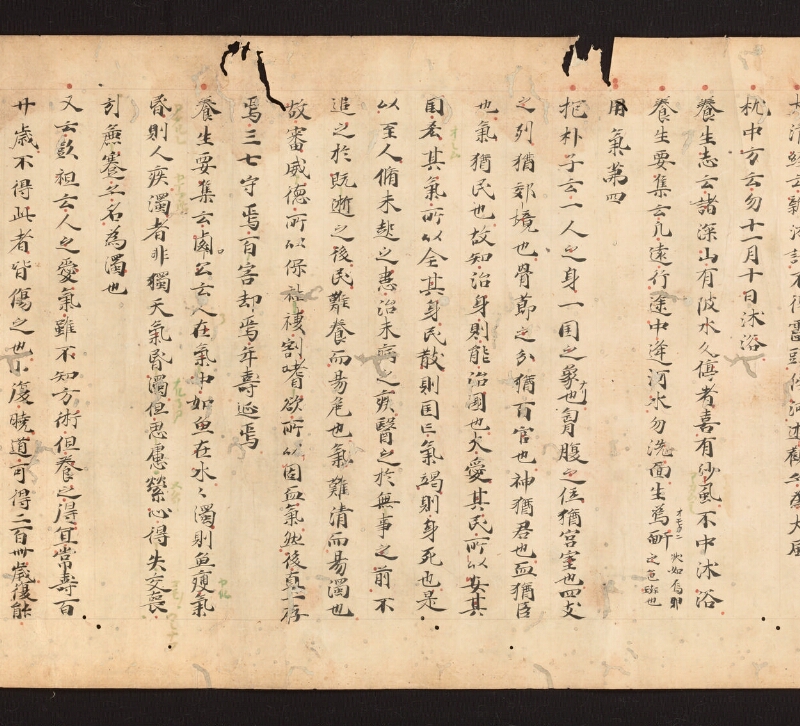 枕中方云勿十一月十日沐浴
養生志云諸深山有波水久停者喜有沙虱不中沐浴
養生要集云凡遠行途中逢河水勿洗面生烏䵟 状如烏卵之色斑也
用氣第四
抱朴子云一人之身一国之象也胷腹之位猶宮室也四支
之列猶郊境也骨莭之分猶百官也神猶君也血猶臣
也氣猶民也故知治身則能治國也夫愛其民所以安其
国吝其氣所以全其身民散則国亡氣竭則身死也是
以至人備未起之患治未病之疾醫之於無事之前不
追之於既逝之後民難養而易危也氣難清而易濁也
故審威徳所以保社禝割嗜欲所以固血氣然後真一存
焉三七守焉百害却焉年壽延焉
養生要集云𨜞公云人在氣中如魚在水々濁則魚𤸃氣
昏則人疾濁者非獨天氣昏濁但思慮縈心得失交喪
引無蹇之名為濁也
又云彭祖云人之愛氣雖不知方術但養之得宜常壽百
廿歳不得此者皆傷之也小復暁道可得二百卌歳復能